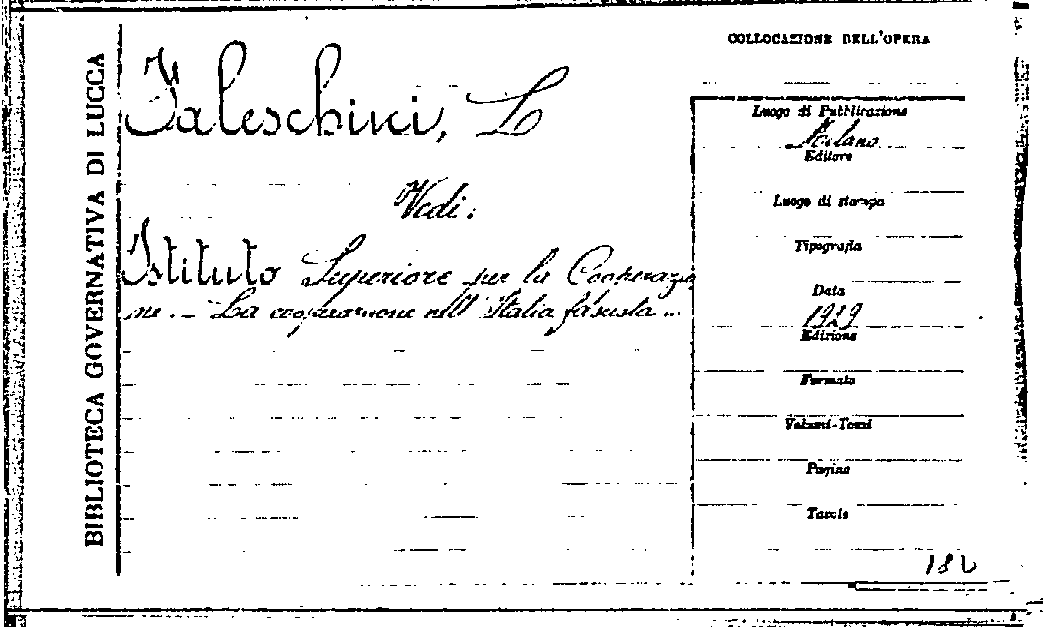 BIBLIOTECA GOVERNATIVA DI LUCCA
Valeschini, L
Vedi:
Istituto Superiore per la Cooperazio
ne. - La cooperazione nell'Italia fascista...
COLLOCAZIONE DELL'OPERA
Luogo di Pubblicazione
Milano
Editore
Luogo di stampa
Tipografia
Data
1929
Edizione
Formato
Volumi-Tomi
Pagine
Tavole
182